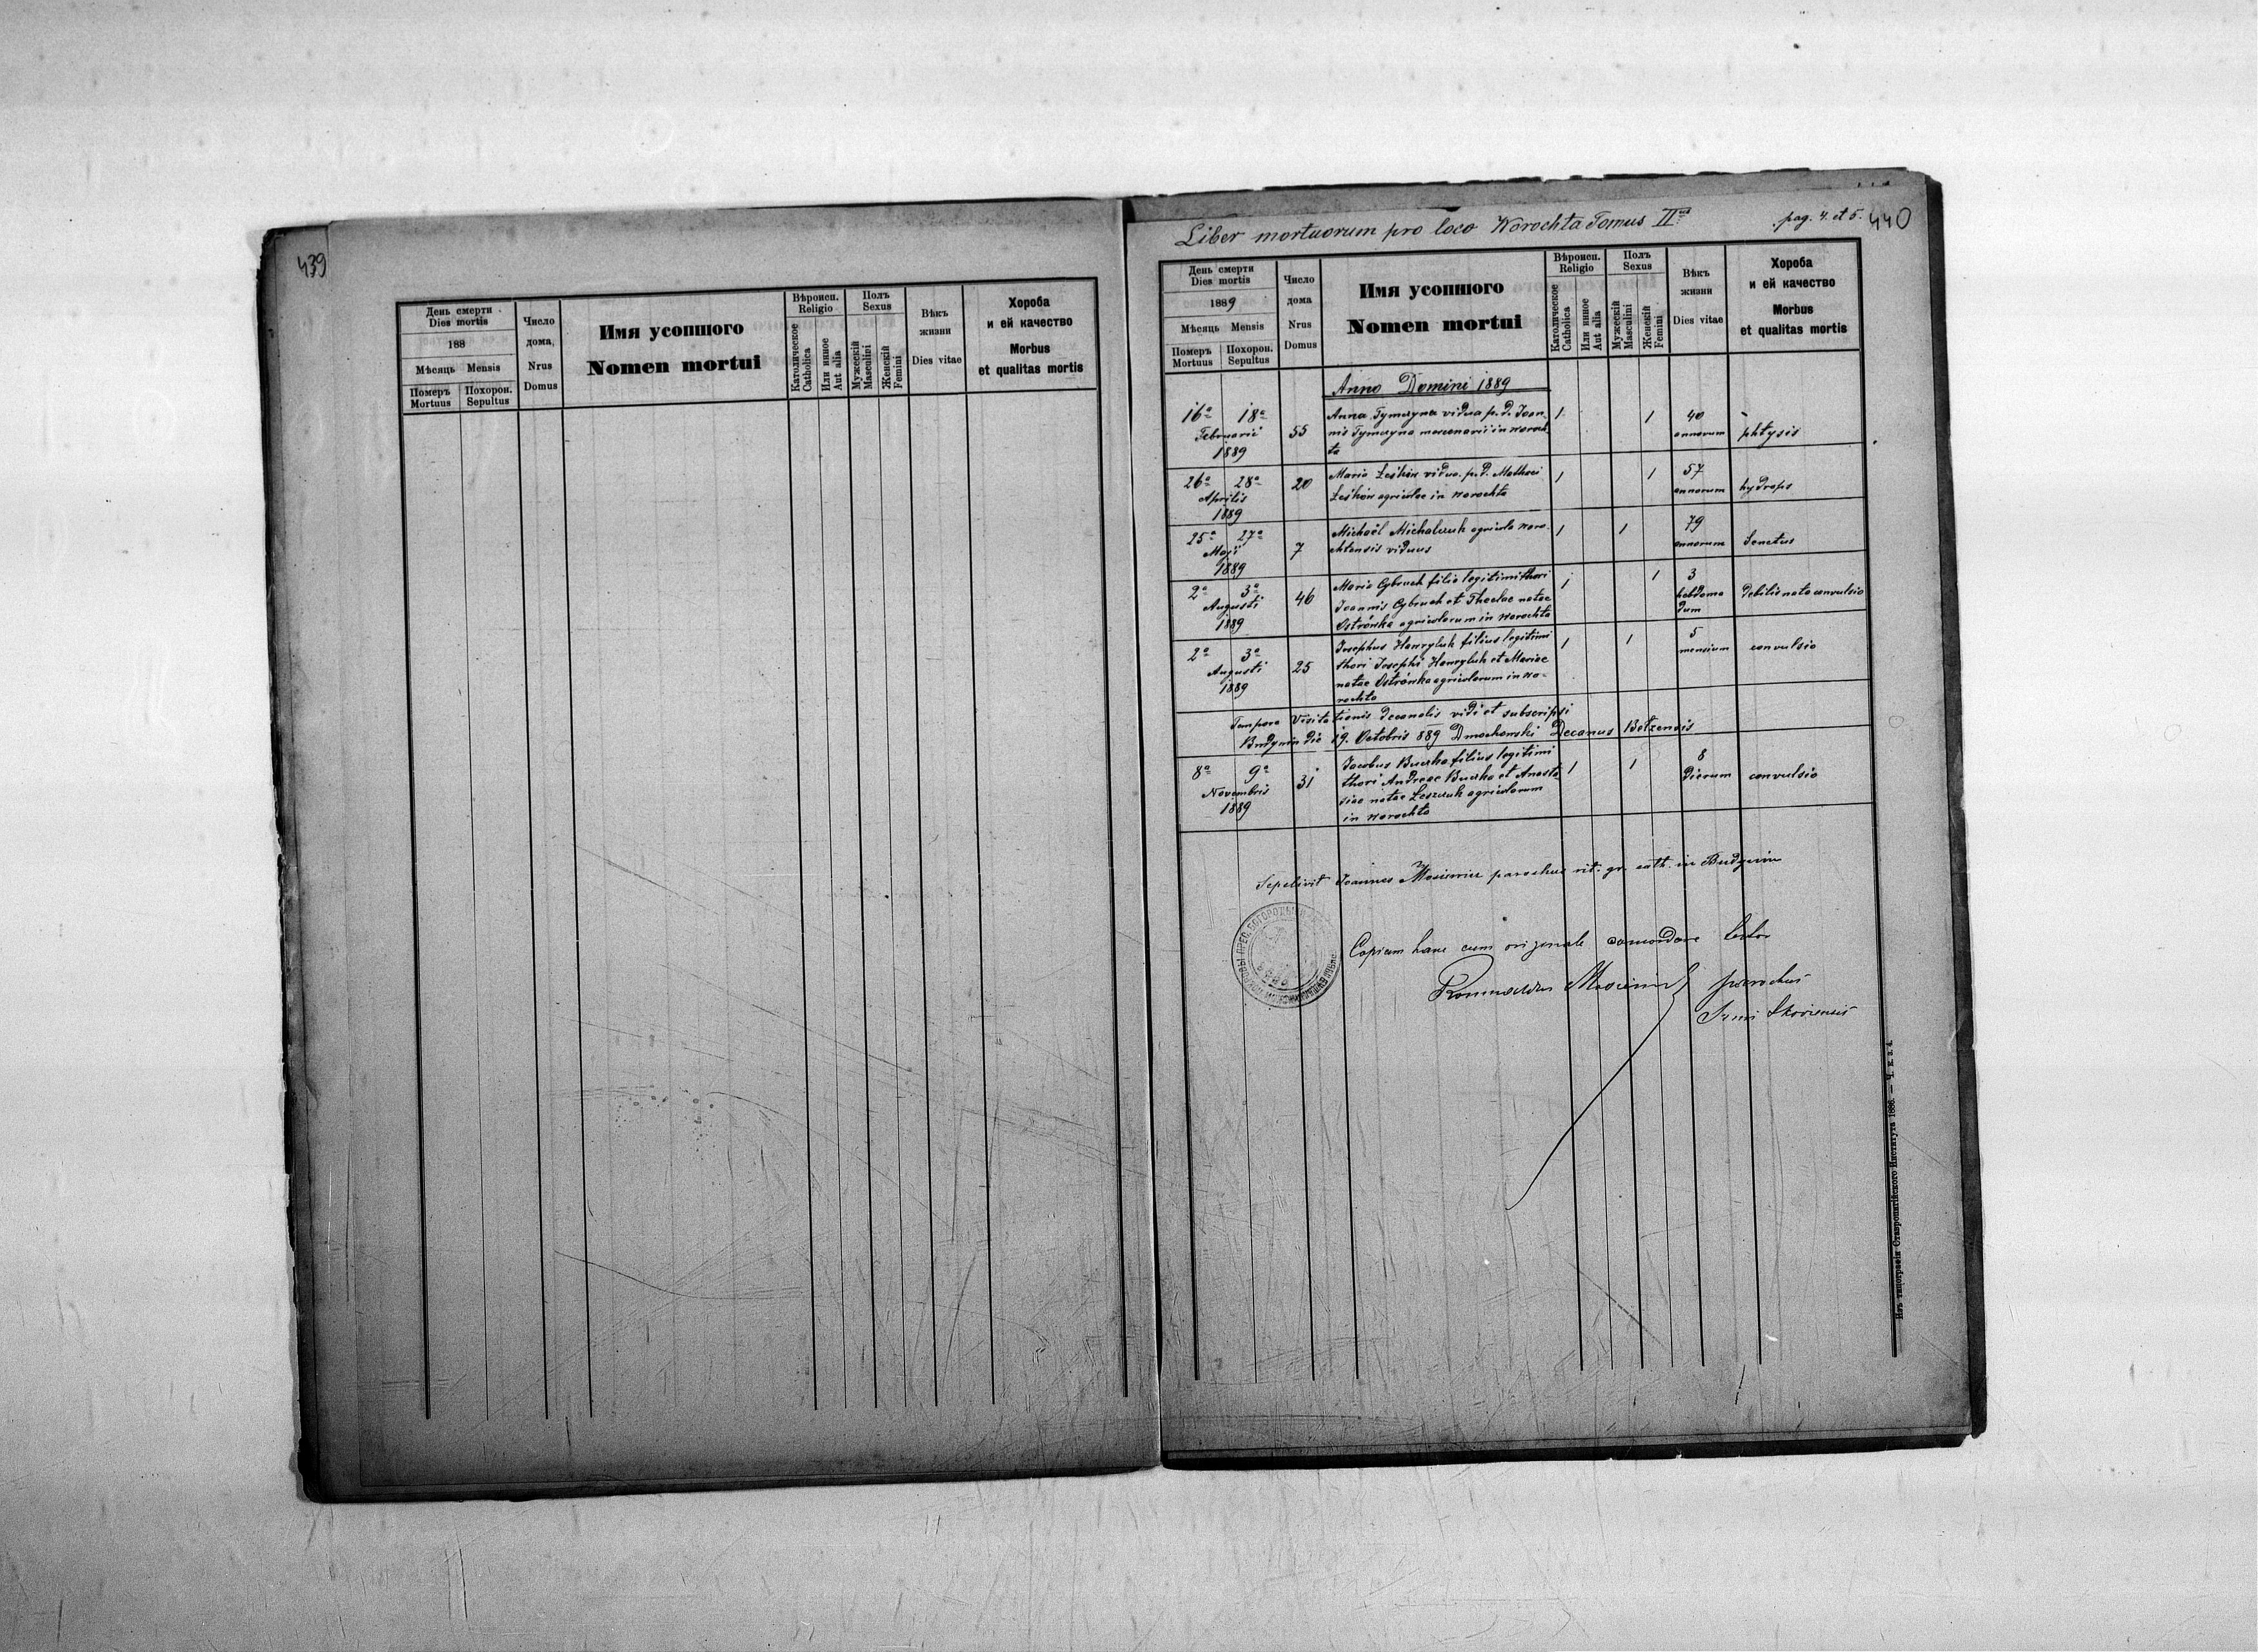 439
День смерти
Dies mortis
188
Мѣсяць Mensis
Померъ Похорон.
Mortuus Sepultus
Число
дома,
Nrus
Domus
Имя усопшого
Nomen mortui
Вѣроисп.
Religio
Католическое
Catholica
Или инное
Aut alia
Полъ
Sexus
Мужескій
Masculini
Женскій
Femini
Вѣкъ
жизни
Dies vitae
Хороба
и ей качество
Morbus
et qualitas mortis
Liber mortuorum pro loco Worochta Tomus II
pag. 4. et 5.
440
День смерти
Dies mortis
1889
Мѣсяць Mensis
Померъ Похорон.
Mortuus Sepultus
Число
дома
Nrus
Domus
Имя усопшого
Nomen mortui
Вѣроисп.
Religio
Католическое
Catholica
Или инное
Aut alia
Полъ
Sexus
Мужескій
Masculini
Женскій
Femini
Вѣкъ
жизни
Dies vitae
Хороба
и ей качество
Morbus
et qualitas mortis
Anno Domini 1889
16a 18a
Februarii
1889
55
Anna Tymczyna vidua p. d. Joan-
nis Tymczyna mercenarii in Woroch-
ta
1 1
40
annorum
phtysis
26a 28a
Aprilis
1889
20
Maria vidua p. d. Mathaei
agricolae in Worochta
1 1
57
annorum
hydrops
25a 27a
Maji
1889
7
Michaël Michalczuk agricola Woro-
chtensis viduus
1 1
79
annorum
Senectus
2a 3a
Augusti
1889
46
Maria Cybruch filia legitimi thori
Joannis Cybruch et Theclae natae
Ostrówka agricolarum in Worochta
1 1
3
hebdoma
dum
debilis nata convulsio
2a 3a
Augusti
1889
25
Josephus Hawryluk filius legitimi
thori Josephi Hawryluk et Mariae
natae Ostrówka agricolarum in Wo-
rochta
1 1
5
mensium
convulsio
Tempore Visitationis decanalis vidi et subscripsi
Budynin die 19. Octobris 889 Dmochowski Decanus Bełzensis
8a 9a
Novembris
1889
31
Jacobus Buczko filius legitimi
thori Andreae Buczko et Anasta-
siae natae Leszczuk agricolarum
in Worochta
1 1
8
dierum
convulsio
Sepelivit Joannes parochus rit. gr. cath. in Budynin
Copiam hanc cum originale concordare testor
Romualdus parochus
Изъ типографіи Ставропигійского Института 1886. — Ч. к. з. 4.